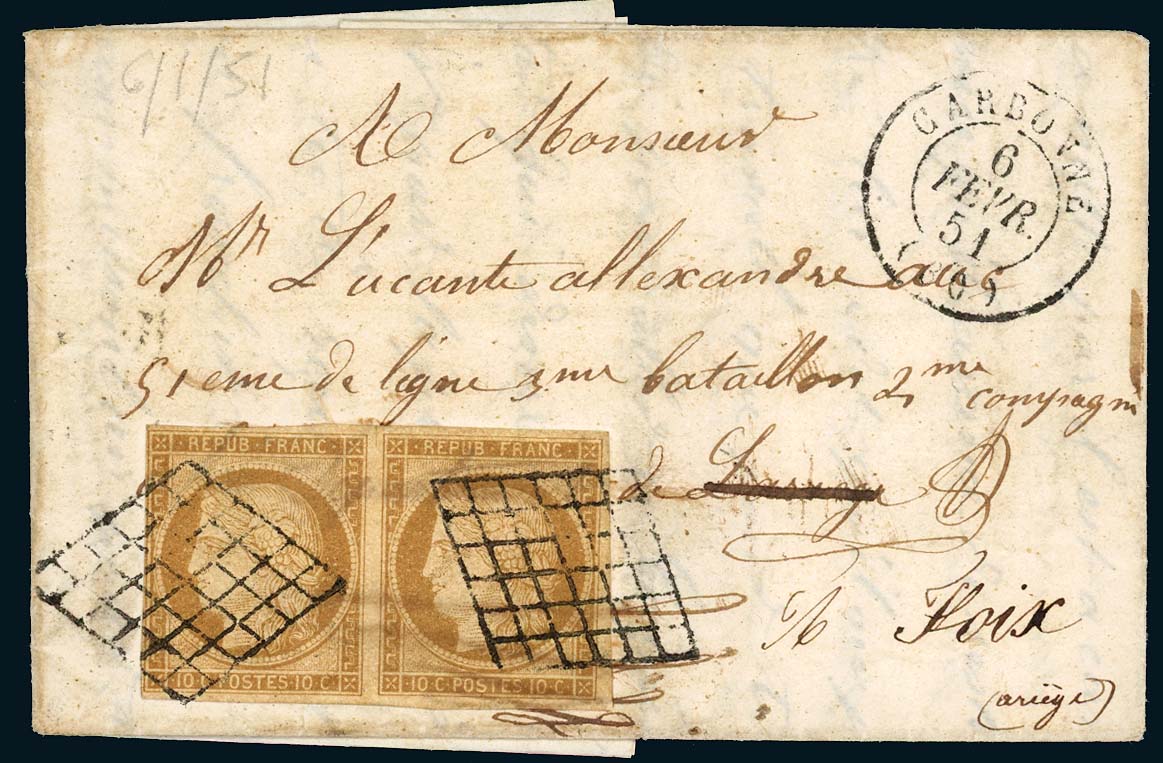 6/1/51
A Monsieur
CARBONNE
6
FEVR.
51
Mr Lucante allexandre au
51 eme de ligne 3me bataillon 2me compagni
REPUB FRANC
REPUB FRANC
de
10 C POSTES 10 C
10 C POSTES 10 C
A Foix
(ariège)